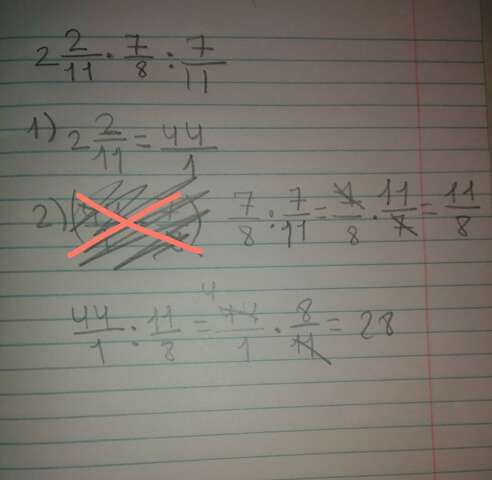 2 2/11 · 7/8 : 7/11
1) 2 2/11 = 44/1
2) 7/8 : 7/11 = 7/8 · 11/7 = 11/8
44/1 : 11/8 = 4 44/1 · 8/11 = 28